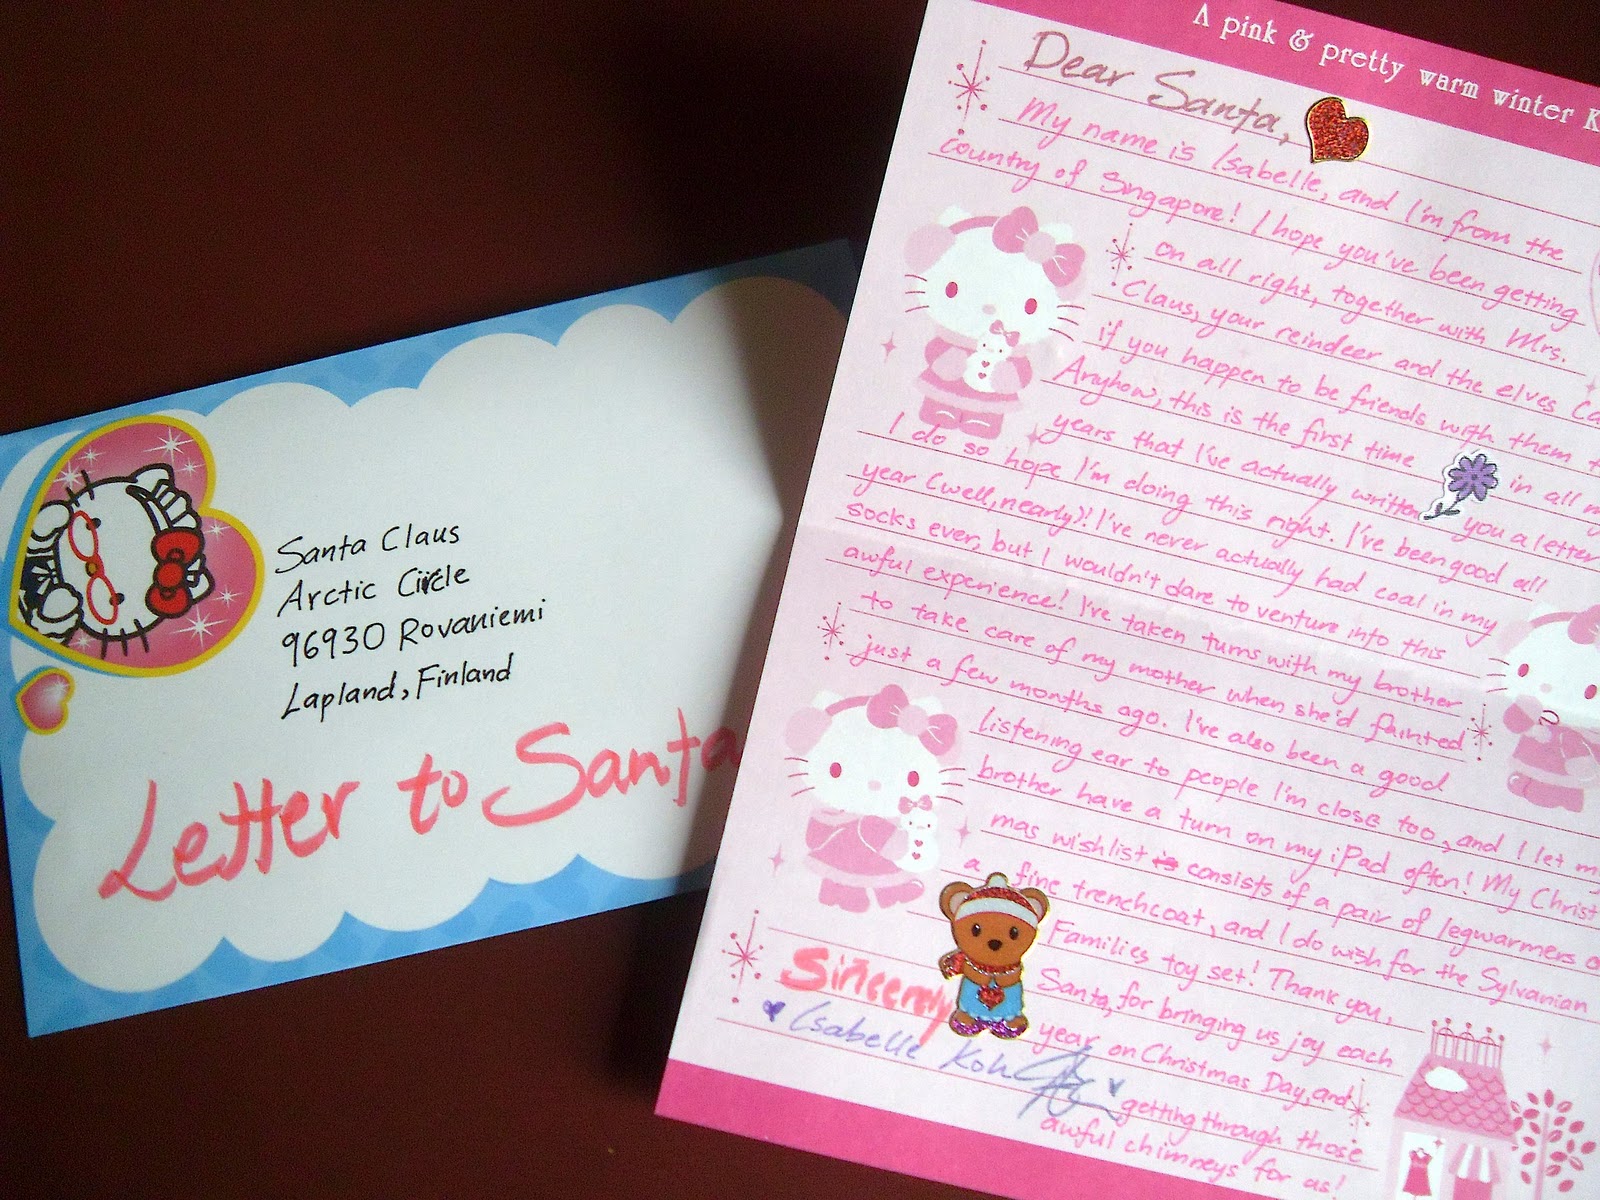 Santa Claus
Arctic Circle
96930 Rovaniemi
Lapland, Finland
Letter to Santa
A pink & pretty warm winter K
Dear Santa,
My name is Isabelle, and I'm from the
country of Singapore! I hope you've been getting
on all right, together with Mrs.
Claus, your reindeer and the elves (a
if you happen to be friends with them t
Anyhow, this is the first time in all m
years that I've actually written you a letter
I do so hope I'm doing this right. I've been good all
year (well, nearly)! I've never actually had coal in my
socks ever, but I wouldn't dare to venture into this
awful experience! I've taken turns with my brother
to take care of my mother when she'd fainted
just a few months ago. I've also been a good
listening ear to people I'm close too, and I let my
brother have a turn on my iPad often! My Christ
mas wishlist is consists of a pair of legwarmers o
a fine trenchcoat, and I do wish for the Sylvanian
Families toy set! Thank you,
Santa, for bringing us joy each
year on Christmas Day, and
getting through those
awful chimneys for us!
Sincerely
Isabelle Koh